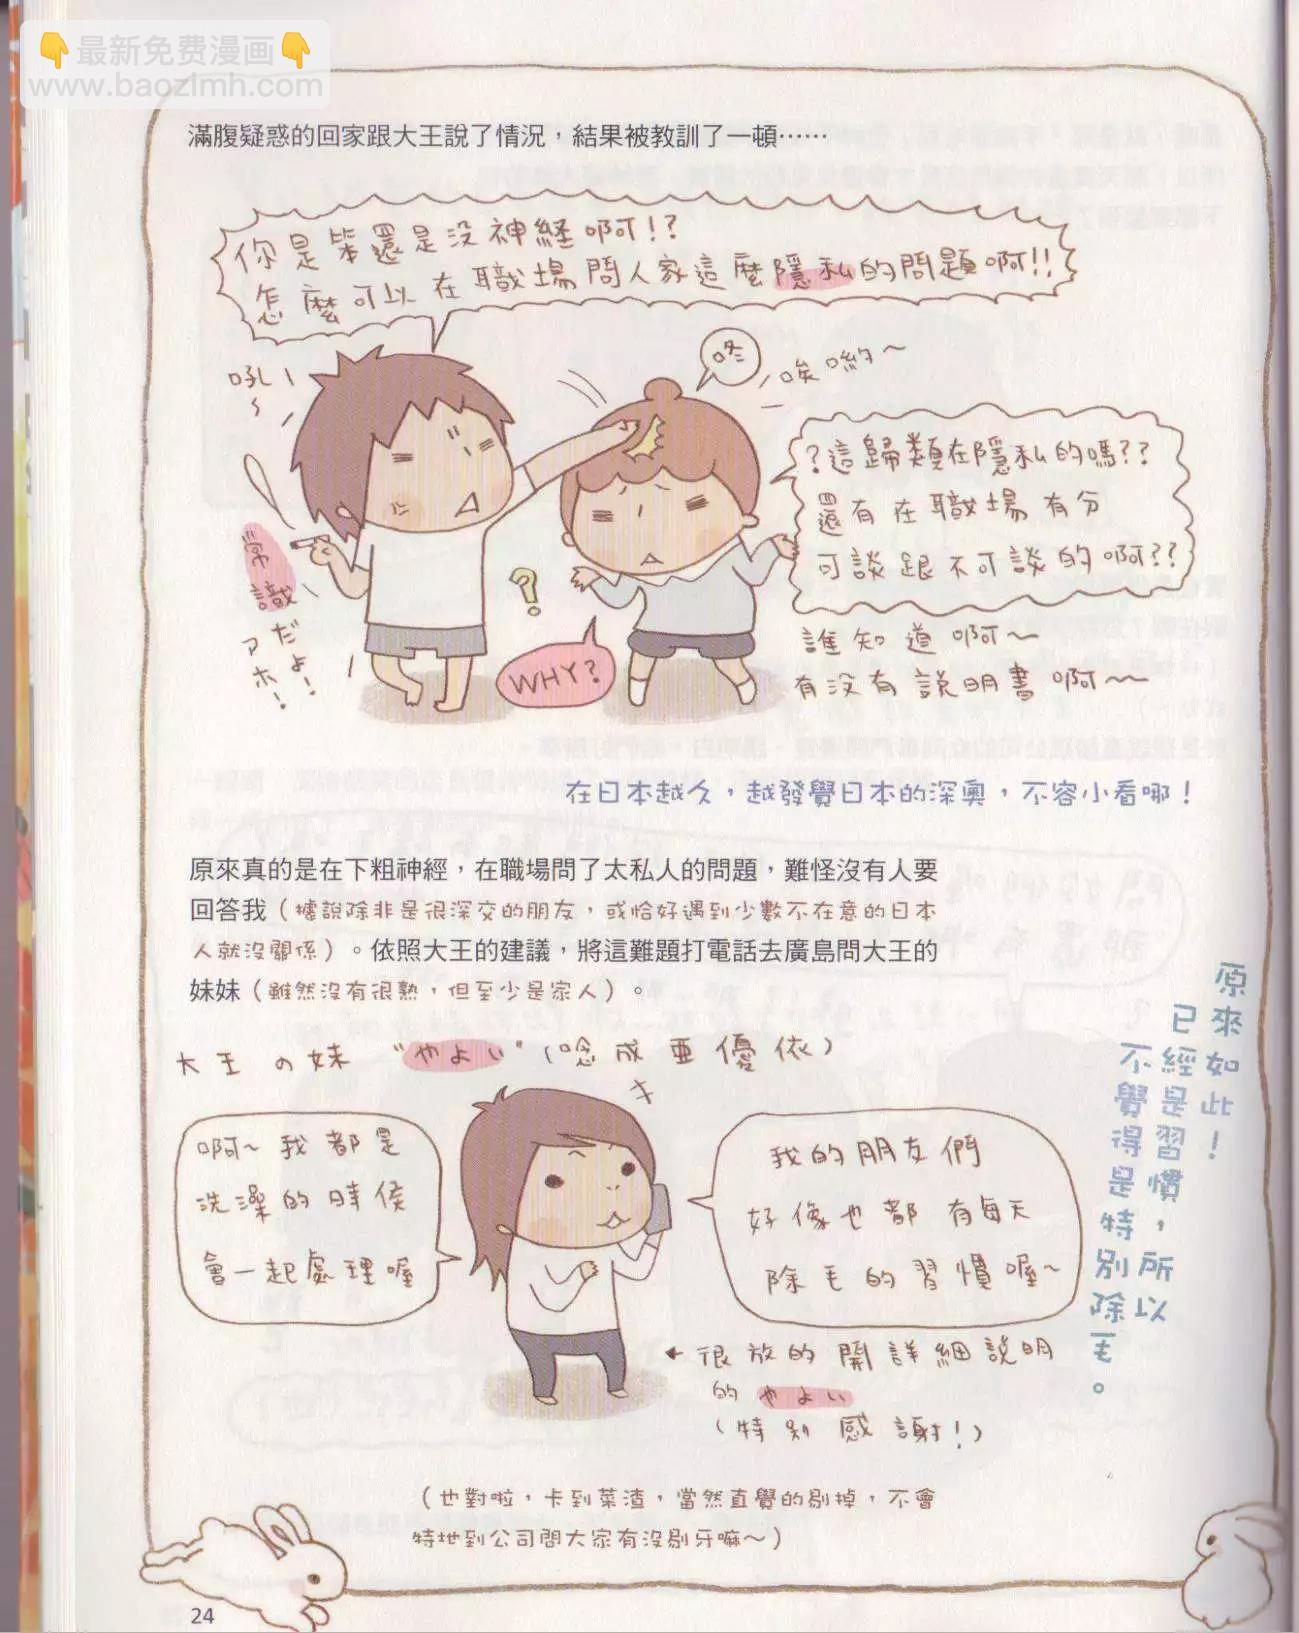 👇最新免费漫画👇
www.baozimh.com
滿腹疑惑的回家跟大王說了情況，結果被教訓了一頓……
你是笨還是沒神経啊!?
怎麼可以在職場問人家這麼隱私的問題啊!!
吼~
咚
唉喲~
常識だよ!
アホ!
?這歸類在隱私的嗎??
還有在職場有分
可談跟不可談的啊??
WHY?
誰知道啊~
有沒有説明書啊~~
在日本越久，越發覺日本的深奧，不容小看哪！
原來真的是在下粗神經，在職場問了太私人的問題，難怪沒有人要
回答我（據說除非是很深交的朋友，或恰好遇到少數不在意的日本
人就沒關係）。依照大王的建議，將這難題打電話去廣島問大王的
妹妹（雖然沒有很熟，但至少是家人）。
大王の妹 "やよい"(唸成亜優依)
啊~我都是
洗澡的時侯
會一起處理喔
我的朋友們
好像也都有每天
除毛的習慣喔~
←很放的開詳細說明
的やよい
(特別感謝!)
原來如此！
已經是習慣，所以
不覺得是特別除毛。
（也對啦，卡到菜渣，當然直覺的剔掉，不會
特地到公司問大家有沒剔牙嘛～）
24